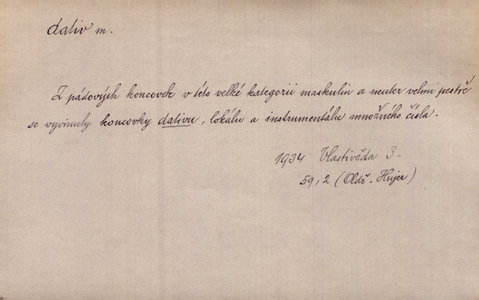 dativ m.
Z pádových koncovek v této velké kategorii maskulin a neuter velmi pestře
se vyvinuly koncovky dativu, lokálu a instrumentálu množného čísla.
1934 Vlastivěda 3.
59, 2 (Oldř. Hujer)